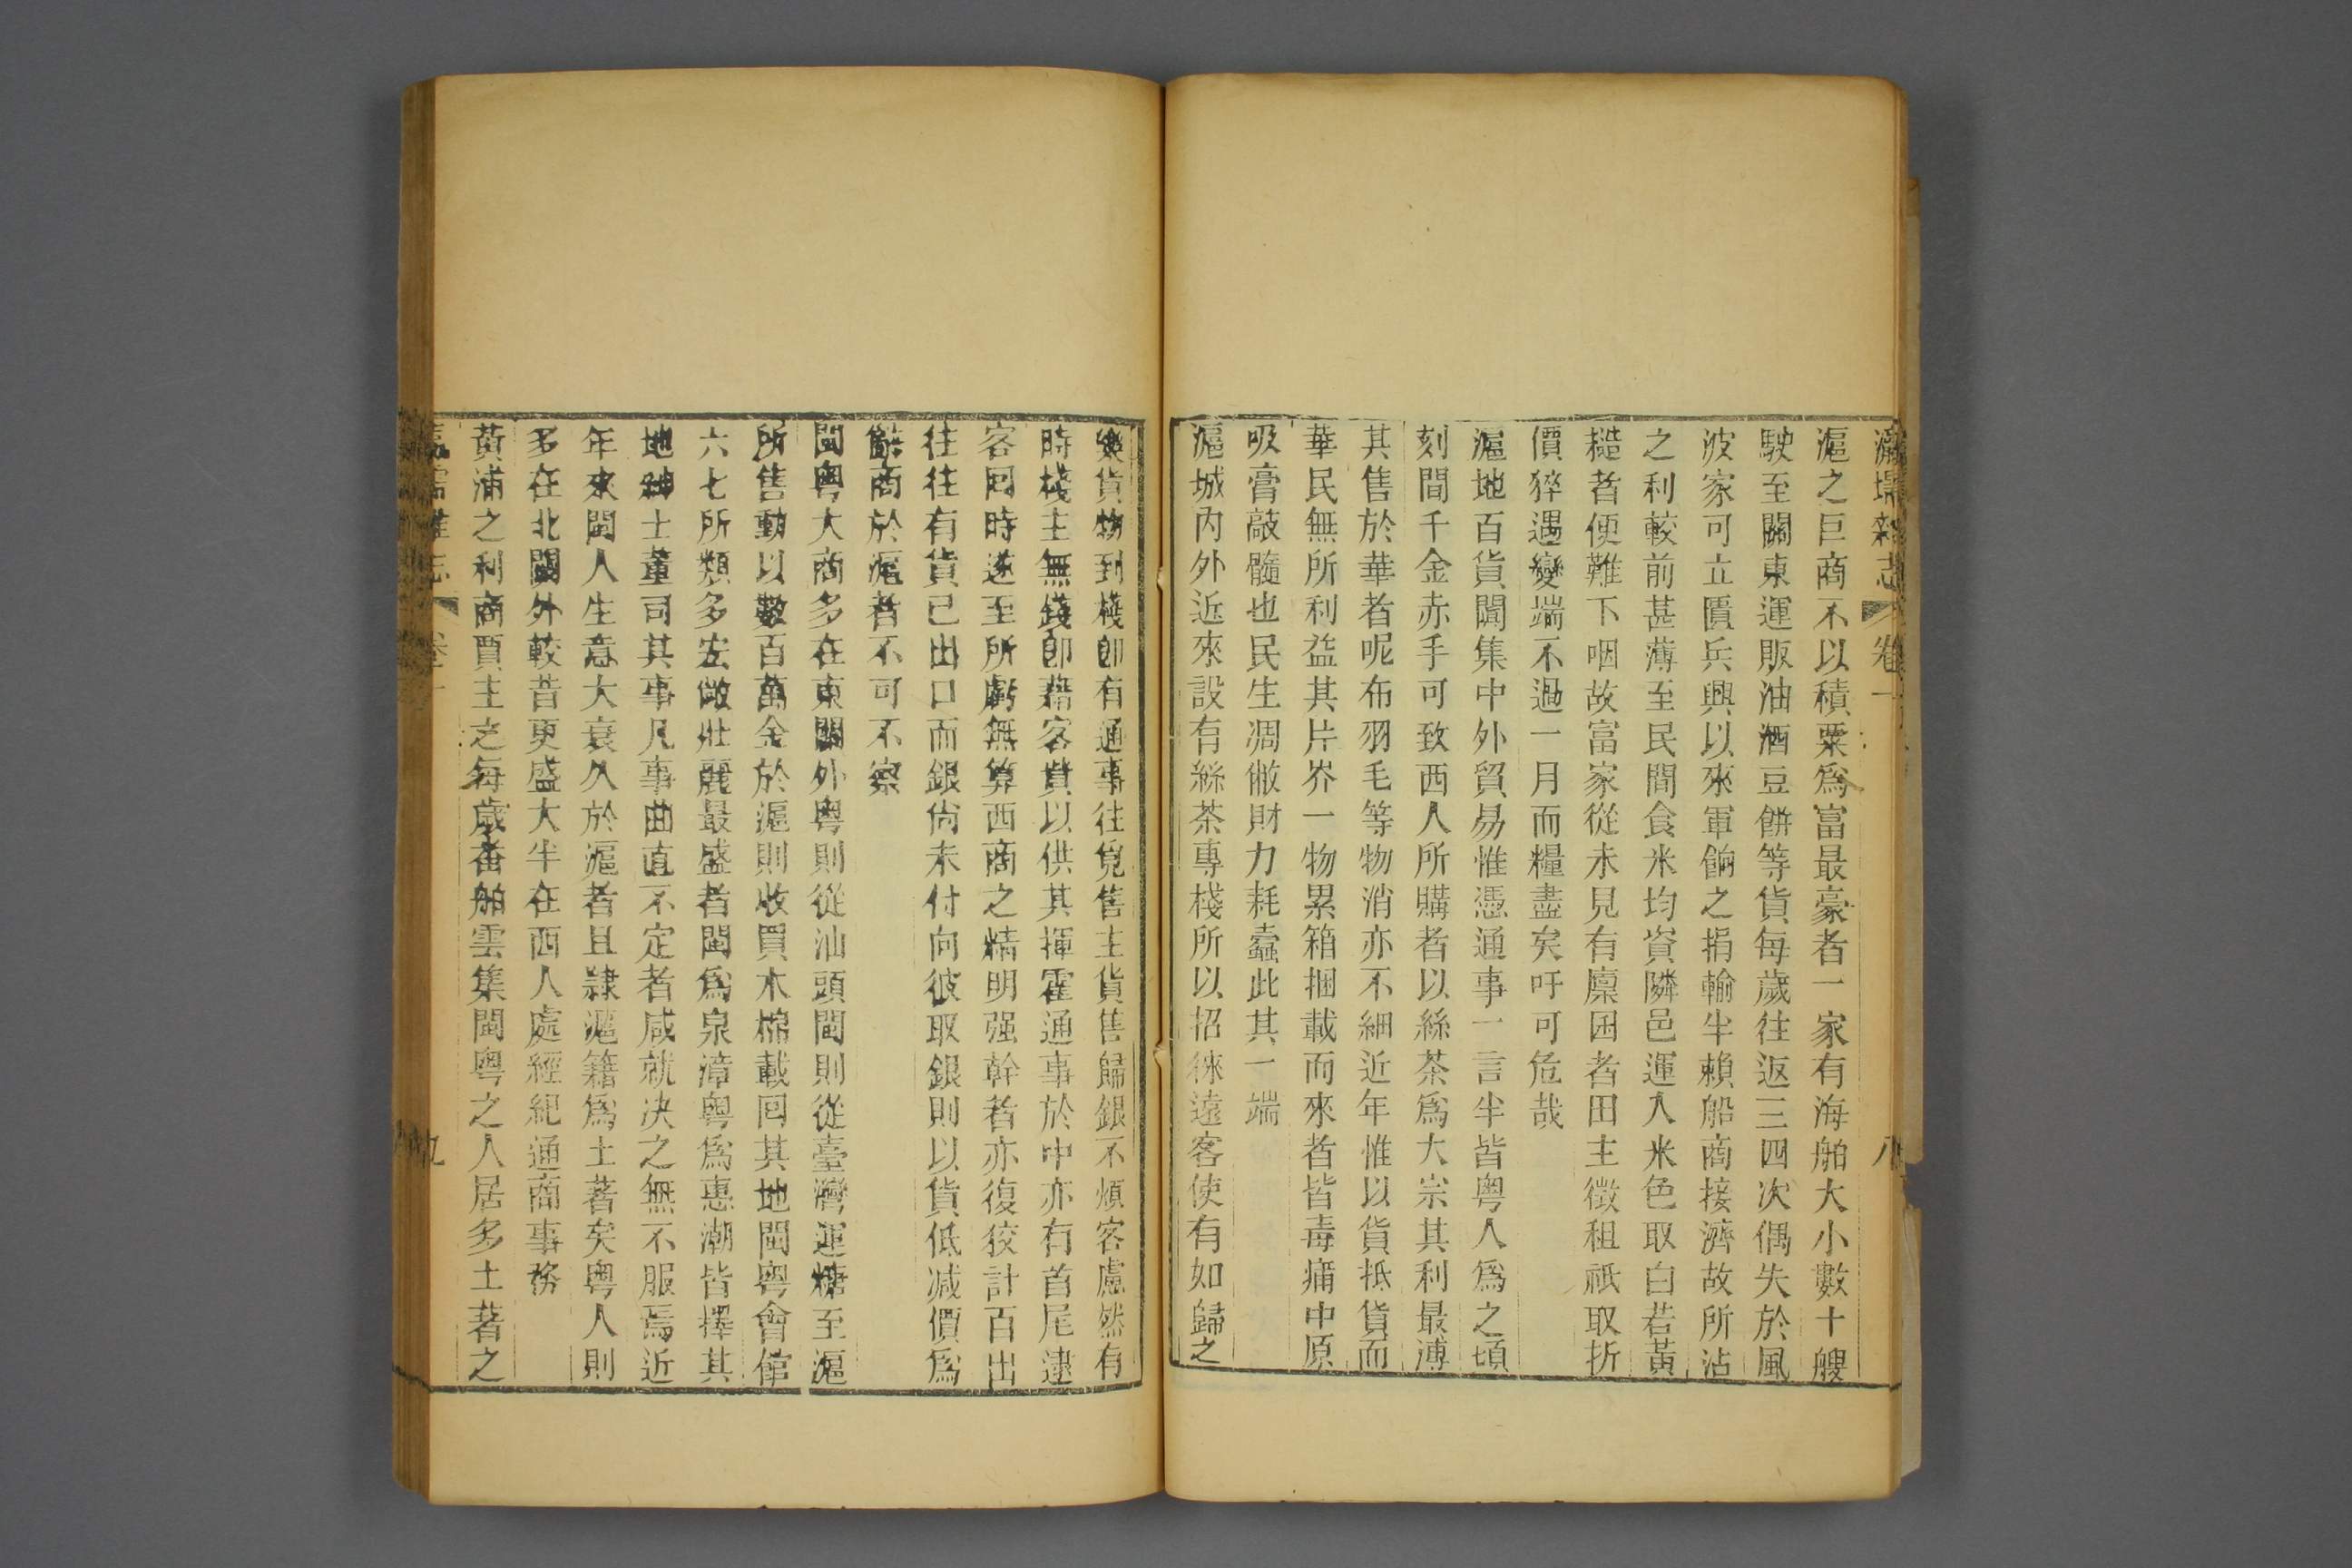 瀛壖雜志 卷一 八
滬之巨商不以積粟爲富最豪者一家有海舶大小數十艘
駛至關東運販油酒豆餅等貨每歲往返三四次偶失於風
波家可立匱兵興以來軍餉之捐輸半賴船商接濟故所沾
之利較前甚薄至民間食米均資隣邑運入米色取白若黃
糙者便難下咽故富家從未見有廩囷者田主徵租祇取折
價猝遇變端不過一月而糧盡矣吁可危哉
滬地百貨闐集中外貿易惟憑通事一言半皆粵人爲之頃
刻間千金赤手可致西人所購者以絲茶爲大宗其利最溥
其售於華者呢布羽毛等物消亦不細近年惟以貨抵貨而
華民無所利益其片芥一物累箱捆載而來者皆毒痡中原
吸膏敲髓也民生凋僘財力耗蠹此其一端
滬城內外近來設有絲茶專棧所以招徠遠客使有如歸之
樂貨物到棧卽有通事往覓售主貨售歸銀不煩客慮然有
時棧主無錢卽藉客貲以供其揮霍通事於中亦有首尾逮
客回時遂至所虧無算西商之精明强幹者亦復狡計百出
往往有貨已出口而銀尙未付向彼取銀則以貨低減價爲
辭商於滬者不可不察
閩粵大商多在東關外粵則從汕頭閩則從臺灣運糖至滬
所售動以數百萬金於滬則收買木棉載回其地閩粵會館
六七所類多宏敞壯麗最盛者閩爲泉漳粵爲惠潮皆擇其
地紳士董司其事凡事曲直不定者咸就決之無不服焉近
年來閩人生意大衰久於滬者且隸滬籍爲土著矣粵人則
多在北關外較昔更盛大半在西人處經紀通商事務
黃浦之利商賈主之每歲番舶雲集閩粵之人居多土著之
瀛壖雜志 卷一 九